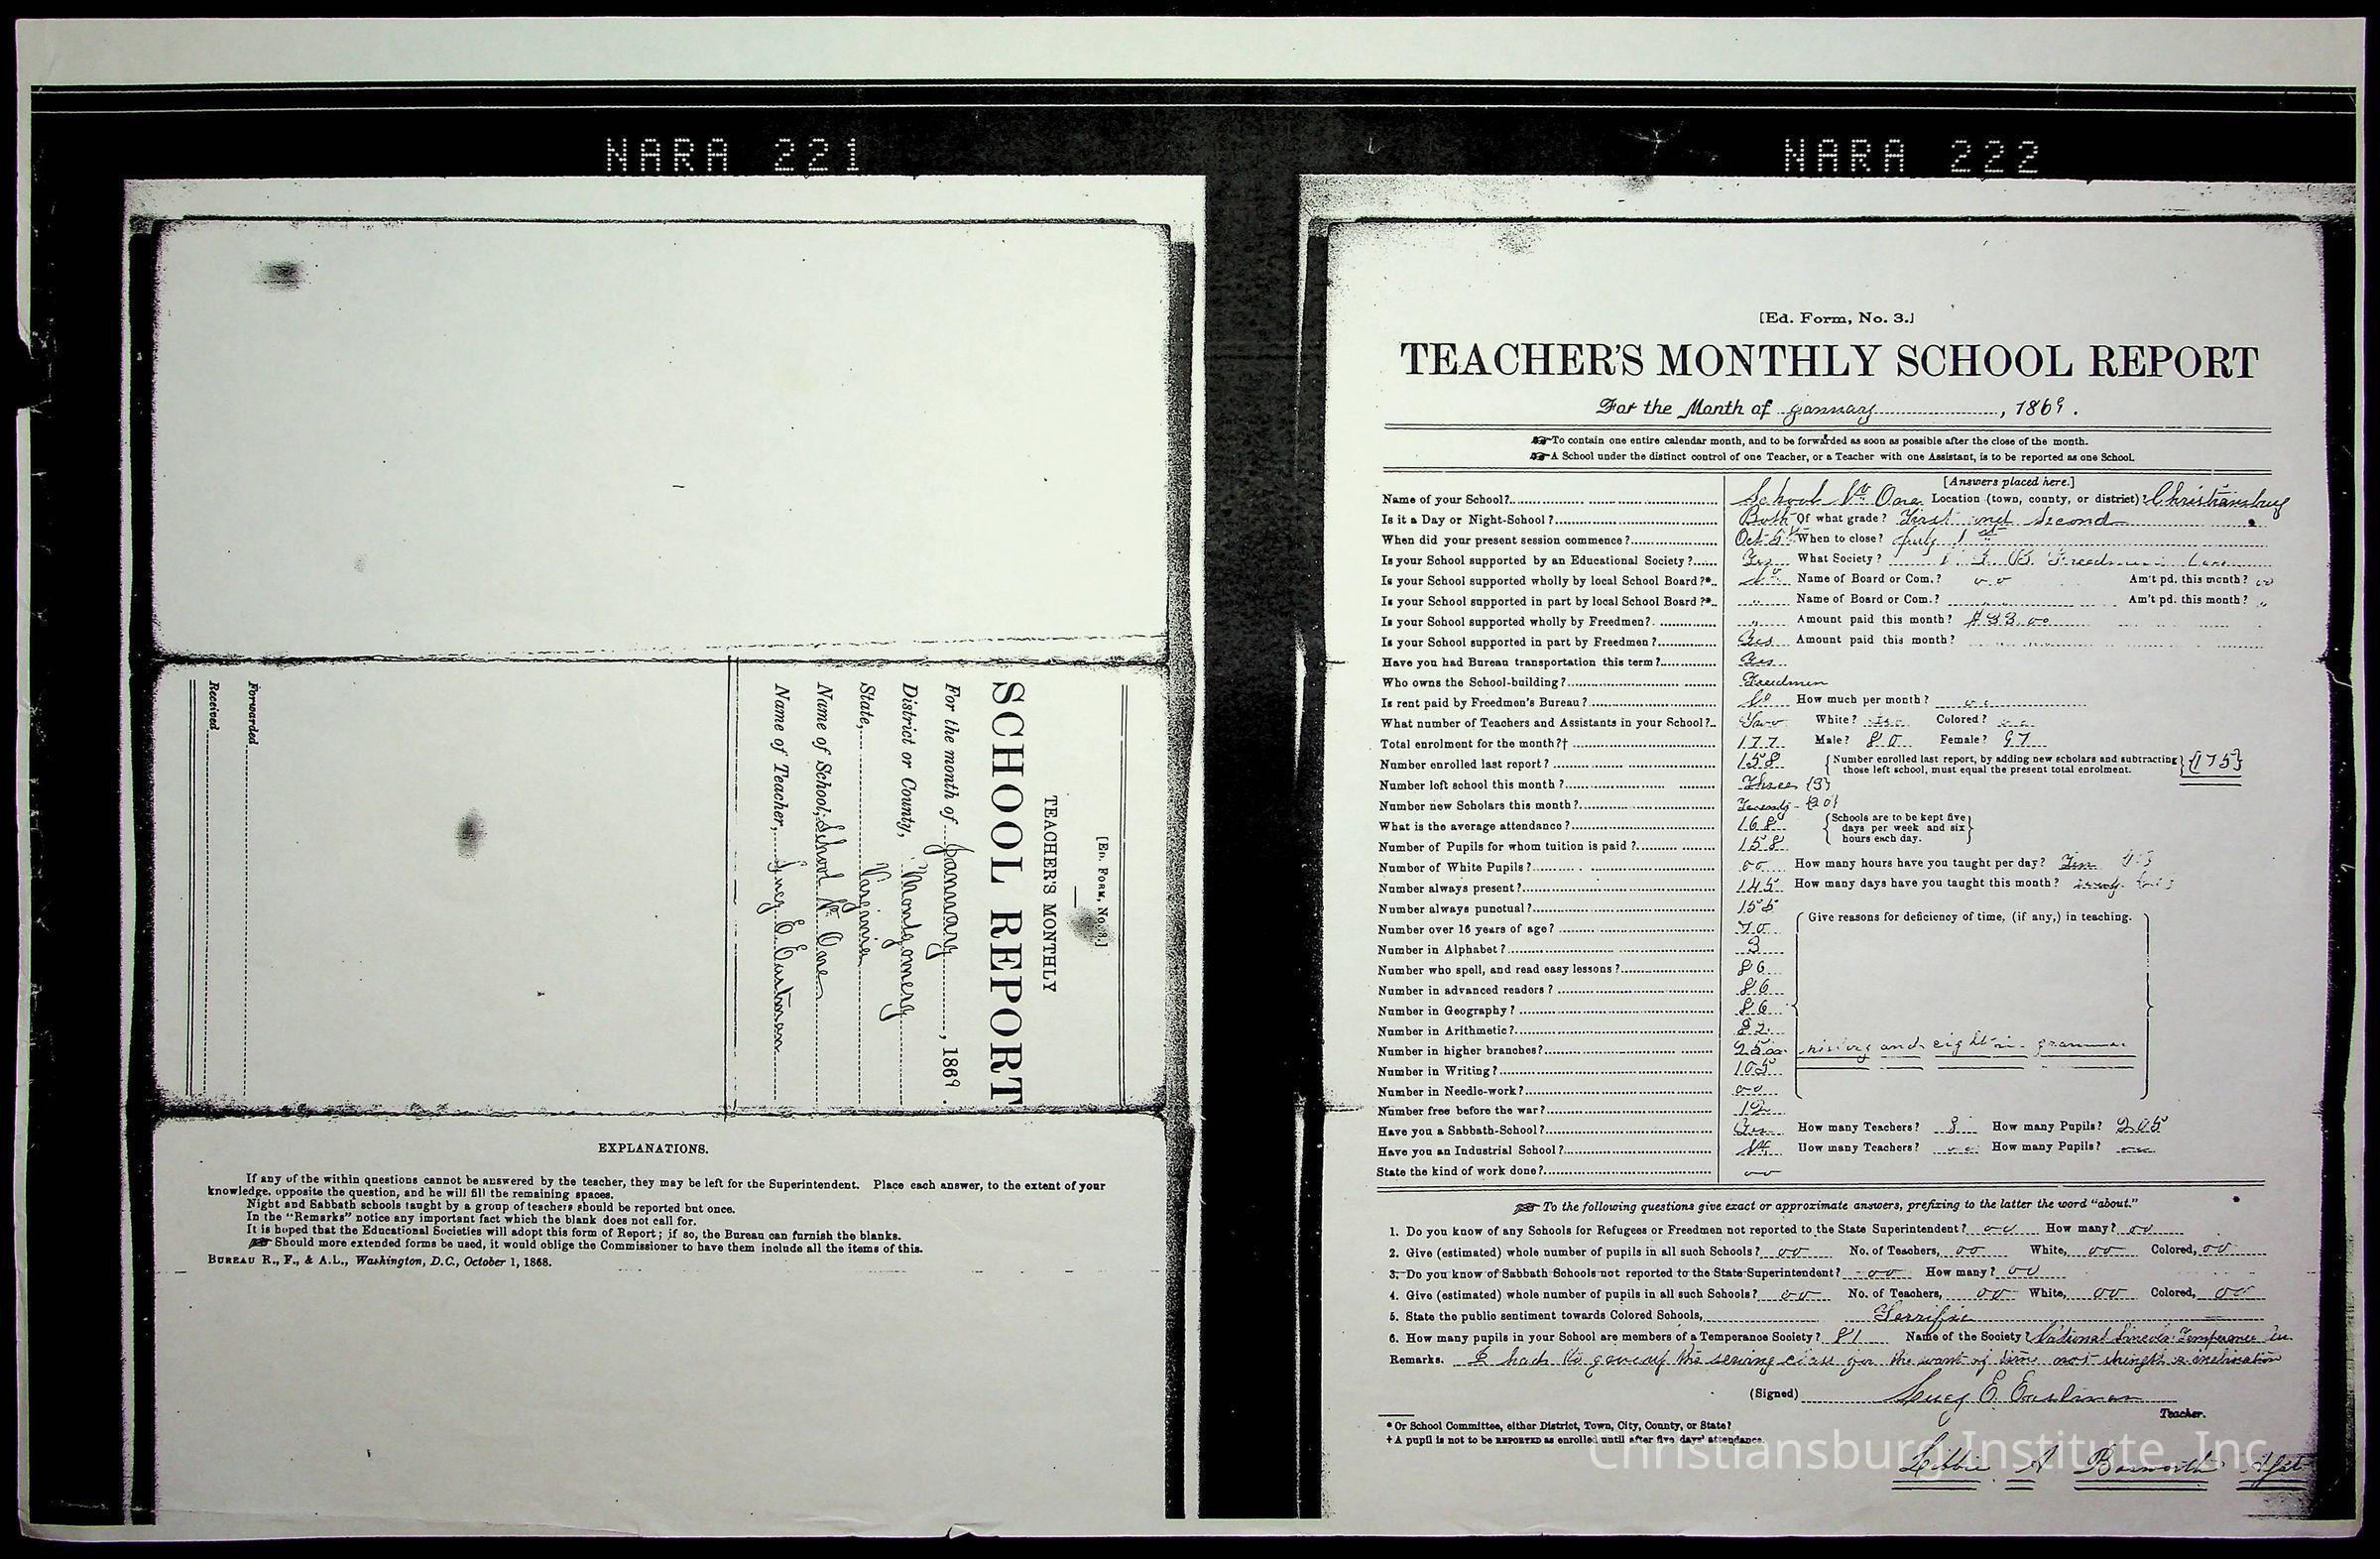 NARA 221
SCHOOL REPORT
[ED. FORM, No. 3.]
TEACHER'S MONTHLY
SCHOOL REPORT
For the month of January, 1869.
District or County, Montgomery
State, Virginia
Name of School, School No. One
Name of Teacher, Lucy E. Eastman
Forwarded
Received
EXPLANATIONS.
If any of the within questions cannot be answered by the teacher, they may be left for the Superintendent. Place each answer, to the extent of your
knowledge, opposite the question, and he will fill the remaining spaces.
Night and Sabbath schools taught by a group of teachers should be reported but once.
In the "Remarks" notice any important fact which the blank does not call for.
It is hoped that the Educational Societies will adopt this form of Report; if so, the Bureau can furnish the blanks.
Should more extended forms be used, it would oblige the Commissioner to have them include all the items of this.
BUREAU R., F., & A.L., Washington, D.C., October 1, 1868.
NARA 222
[Ed. Form, No. 3.]
TEACHER'S MONTHLY SCHOOL REPORT
For the Month of January, 1869.
To contain one entire calendar month, and to be forwarded as soon as possible after the close of the month.
A School under the distinct control of one Teacher, or a Teacher with one Assistant, is to be reported as one School.
[Answers placed here.]
Name of your School? School No. One Location (town, county, or district)? Christiansburg
Is it a Day or Night-School? Both Of what grade? First and Second
When did your present session commence? Oct. When to close? July 1st
Is your School supported by an Educational Society? Yes What Society? F. B. Freedmen's
Is your School supported wholly by local School Board?* No Name of Board or Com.? oo Am't pd. this month? oo
Is your School supported in part by local School Board?* " Name of Board or Com.? Am't pd. this month? "
Is your School supported wholly by Freedmen? " Amount paid this month? $33.00
Is your School supported in part by Freedmen? Yes Amount paid this month?
Have you had Bureau transportation this term? Yes
Who owns the School-building? Freedmen
Is rent paid by Freedmen's Bureau? No How much per month? oo
What number of Teachers and Assistants in your School? Two White? Two Colored? oo
Total enrolment for the month?† 177 Male? 80 Female? 97
Number enrolled last report? 158 {Number enrolled last report, by adding new scholars and subtracting those left school, must equal the present total enrolment.} {175}
Number left school this month? Three {3}
Number new Scholars this month? Twenty {20}
What is the average attendance? 168 {Schools are to be kept five days per week and six hours each day.}
Number of Pupils for whom tuition is paid? 158
Number of White Pupils? oo How many hours have you taught per day?
Number always present? 145 How many days have you taught this month?
Number always punctual? 155
Give reasons for deficiency of time, (if any,) in teaching.
Number over 16 years of age? 70
Number in Alphabet? 3
Number who spell, and read easy lessons? 86
Number in advanced readers? 86
Number in Geography? 86
Number in Arithmetic? 82
Number in higher branches? 25 history and eight in grammar
Number in Writing? 105
Number in Needle-work? oo
Number free before the war? 12
Have you a Sabbath-School? Yes How many Teachers? 8 How many Pupils? 205
Have you an Industrial School? No How many Teachers? oo How many Pupils? oo
State the kind of work done? oo
To the following questions give exact or approximate answers, prefixing to the latter the word "about."
1. Do you know of any Schools for Refugees or Freedmen not reported to the State Superintendent? oo How many? oo
2. Give (estimated) whole number of pupils in all such Schools? oo No. of Teachers, oo White, oo Colored, oo
3. Do you know of Sabbath Schools not reported to the State Superintendent? oo How many? oo
4. Give (estimated) whole number of pupils in all such Schools? oo No. of Teachers, oo White, oo Colored, oo
5. State the public sentiment towards Colored Schools, Terrific
6. How many pupils in your School are members of a Temperance Society? 81 Name of the Society? National Lincoln Temperance
Remarks. I had to give up the sewing class for the want of time not strength or inclination
(Signed) Lucy E. Eastman
Teacher.
* Or School Committee, either District, Town, City, County, or State?
† A pupil is not to be REPORTED as enrolled until after five days' attendance.
Libbie A Bosworth Asst
Christiansburg Institute, Inc.